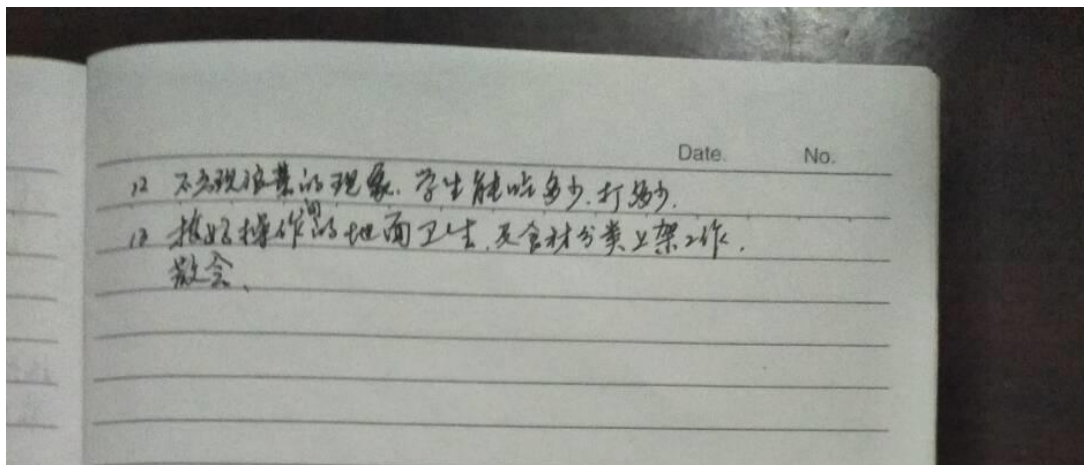 Date. No.
12 不出现浪费的现象. 学生能吃多少. 打多少.
13 搞好操作间的地面卫生. 及食材分类上架工作.
散会、